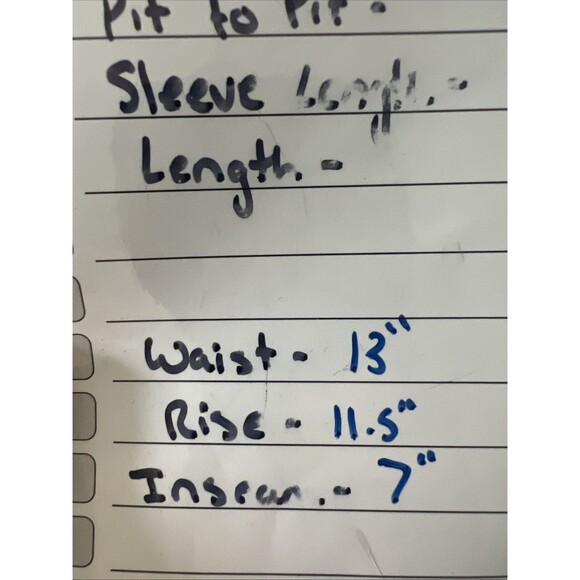 Pit to Pit -
Sleeve Length. -
Length. -
Waist - 13"
Rise - 11.5"
Inseam. - 7"